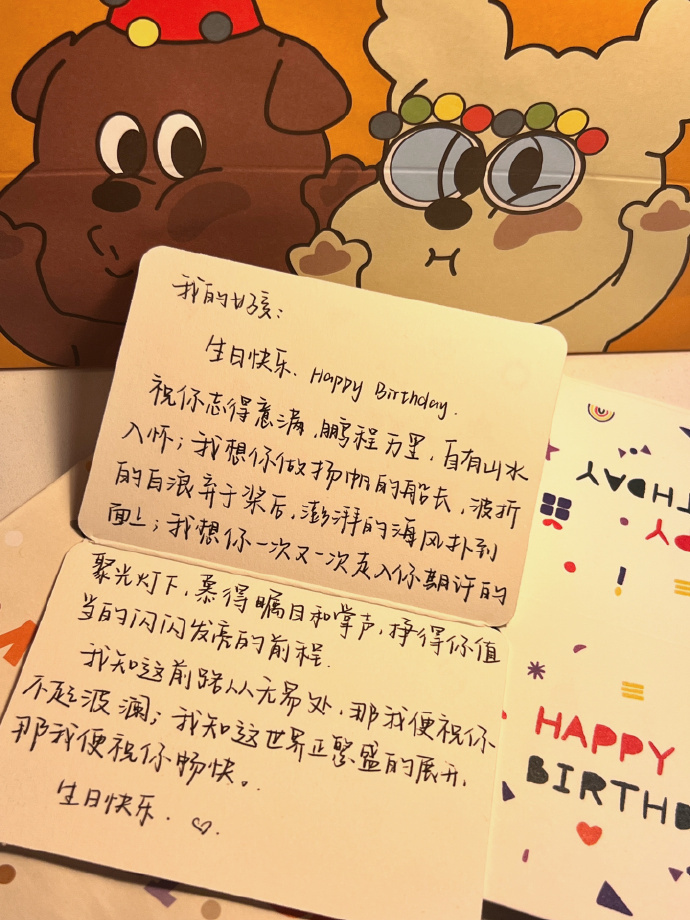 我的好孩:
生日快乐、Happy Birthday.
祝你志得意满,鹏程万里,自有山水
入怀;我想你做扬帆的船长,波折
的白浪弃于桨后,澎湃的海风扑到
面上;我想你一次又一次走入你期许的
聚光灯下,纂得瞩目和掌声,挣得你值
当的闪闪发亮的前程.
我知这前路从无易处,那我便祝你
不起波澜;我知这世界正繁盛的展开,
那我便祝你畅快。
生日快乐.♡.
THDAY
PY
HAPPY
BIRTHD